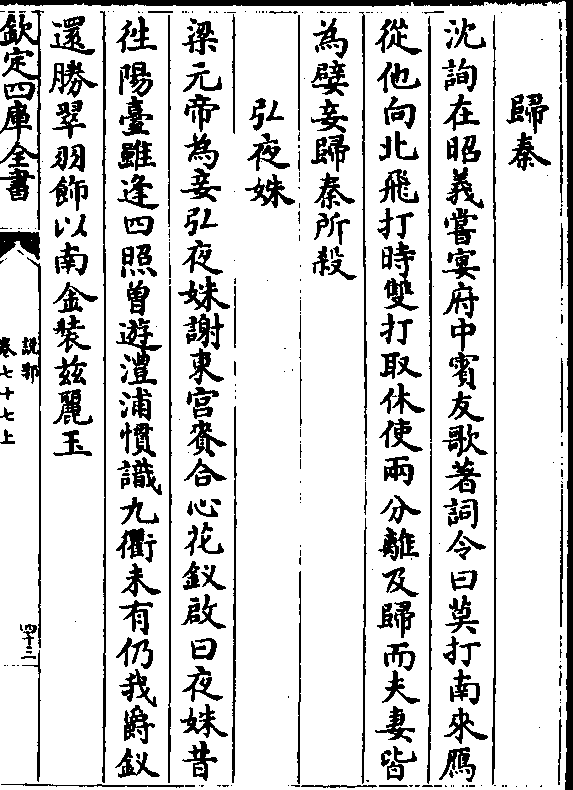 歸秦
沈詢在昭義嘗宴府中賓友歌著詞令曰莫打南來鴈
從他向北飛打時雙打取休使兩分離及歸而夫妻皆
為嬖妾歸秦所殺
弘夜姝
梁元帝為妾弘夜姝謝東宮賚合心花釵啟曰夜姝昔
往陽臺雖逢四照曾遊澧浦慣識九衢未有仍我爵釵
還勝翠羽飾以南金裝兹麗玉
欽定四庫全書
說郛
卷七十七上
四十三